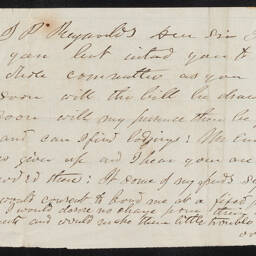 J P Reynolds Dear Sir I
you but intend you to
whole committee as you
soon will the bill be
soon will my presence then be
and can I find lodgings: We
to give up and I hear you are
there: If some of my friends
would consent to board me at a fixed
I would desire no change from their
and would make them little trouble